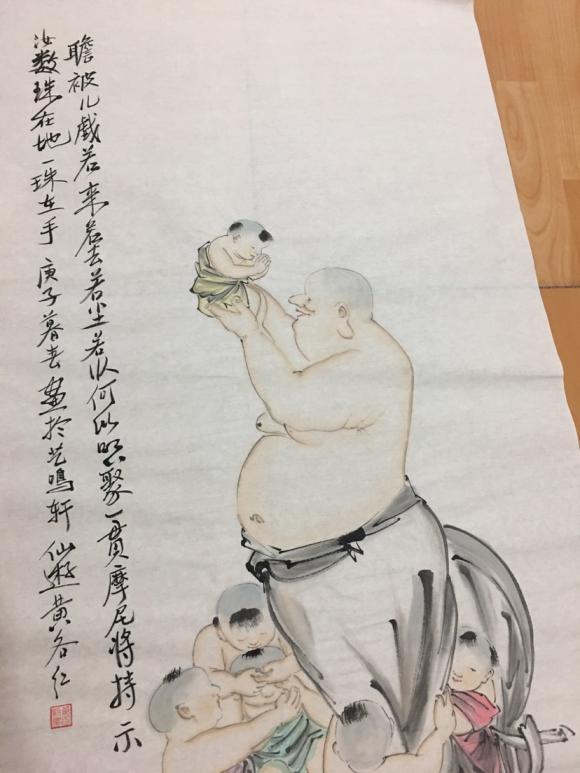 瞻被儿戏若来若去若坐若卧何以明聚一贯摩尼将持示
汝数珠在地一珠在手 庚子暮春画于艺鸣轩 仙游黄名仁